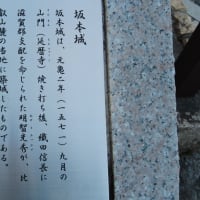 坂本城
坂本城は、元亀二年(一五七一)九月の
山門(延暦寺)焼き打ち後、織田信長に
滋賀郡支配を命じられた明智光秀が、比
叡山麓の当地に築城したものである。